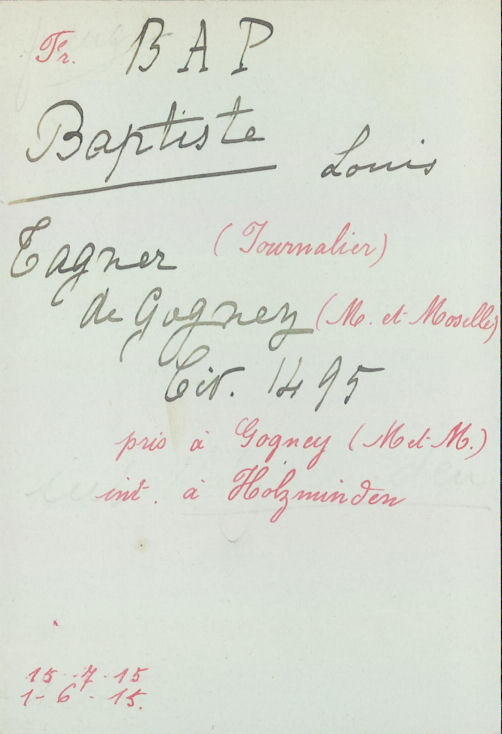 Fr. BAP
Baptiste Louis
Tagner (Journalier)
de Gogney (M. et Moselle)
Civ. 1495
pris à Gogney (M et M.)
int. à Holzminden
15-7-15
1-6-15.